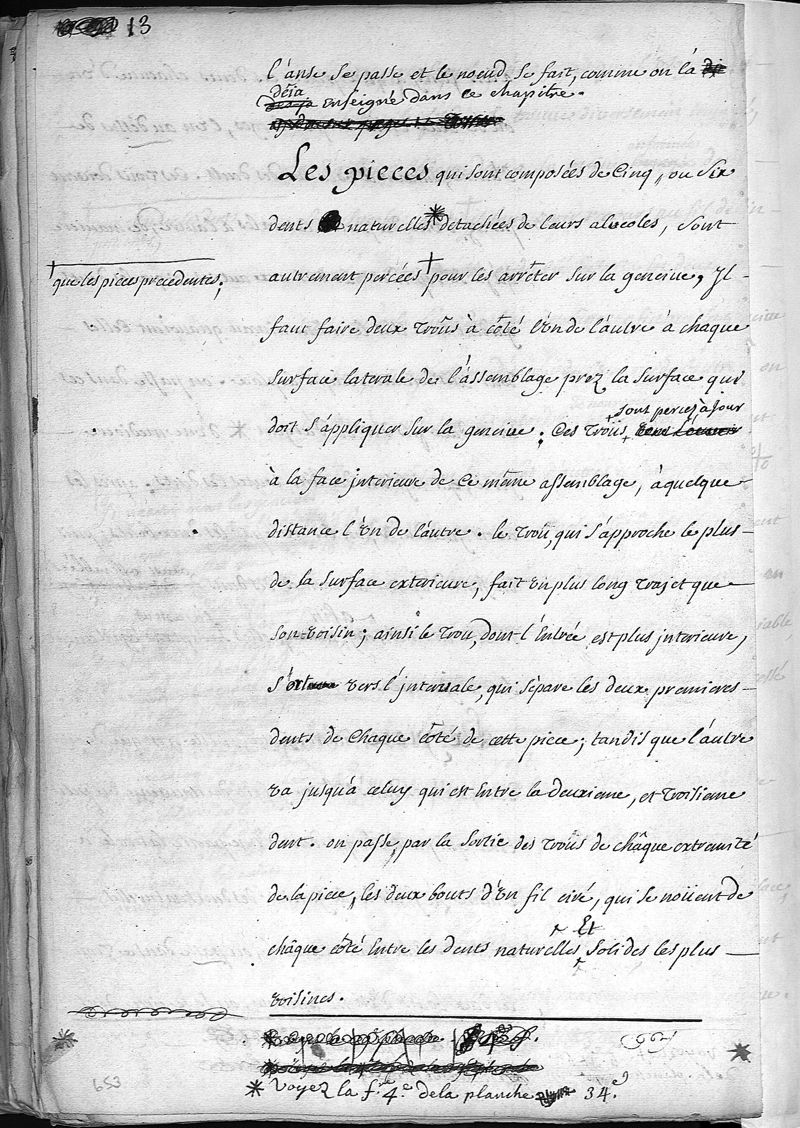 13
l'anse se passe et le noeud se fait, comme on l'á
déja
enseigné dans ce chapitre.
Les pieces qui sont composées de Cinq, ou Six
dents naturelles * detachées de leurs alveoles, sont
† que les pieces precedentes;
autrement percées † pour les arrêter sur la gencive, Il
faut faire deux Troûs à côté l'ün de l'áutre à chaque
surface laterale de l'ássemblage prez la surface qui
sont percez à Jour
doit s'appliquer sur la gencive; Ces Troüs
à la face jnterieure de Ce même assemblage, à quelque
distance l'ün de l'áutre. le Troû, qui s'approche le plus
de la surface exterieure, fait ün plus long Trajet que
son voisin; ainsi le Trou, dont l'Entrée est plus jnterieure,
vers l'jntervale, qui sépare les deux premieres
dents de Chaque côté de cette piece; tandis que l'áutre
va jusqu'à celuy qui est Entre la deuxieme, et Troisieme
dent. on passe, par la sortie des Troûs de châque extremité
de la piece, les deux bouts d'ün fil ciré, qui se noüent de
Et
châque côté Entre les dents naturelles, solides les plus
voisines.
* voyez la f.re 4.e de la planche 34.e
653